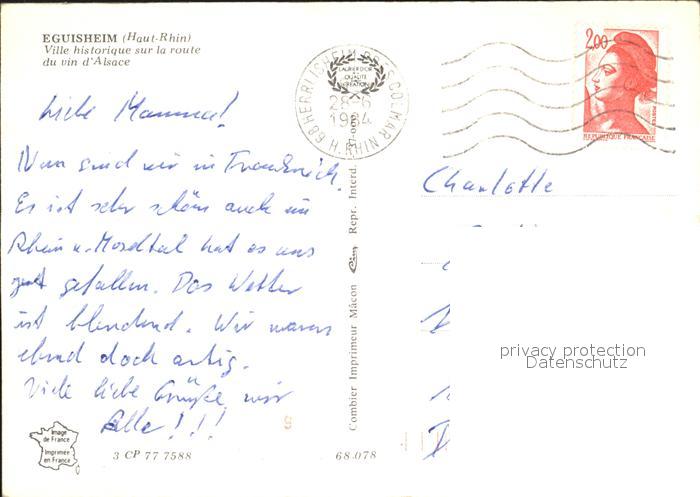 EGUISHEIM (Haut-Rhin)
Ville historique sur la route
du vin d'Alsace
Liebe Mamma!
Nun sind wir in Frankreich.
Es ist sehr schön auch im
Rhein u. Moseltal hat es uns
gut gefallen. Das Wetter
ist blendend. Wir waren
ebend doch artig.
Viele liebe Grüße wir
Alle!!!
Image
de France
Imprimée
en France
3 CP 77 7588
68.078
Combier Imprimeur Mâcon
Repr. Interd.
68 HERRLISHEIM PRES COLMAR H. RHIN
LAURIER D'OR
28-6
1984
2,00
REPUBLIQUE FRANÇAISE
POSTES
Charlotte
privacy protection
Datenschutz